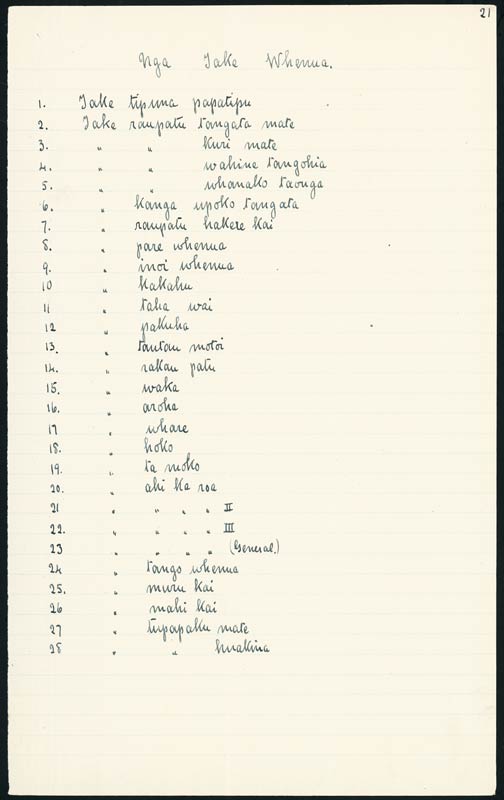 21
Nga Take Whenua.
1. Take tipuna papatipu
2. Take raupatu tangata mate
3. " " kuri mate
4. " " wahine tangohia
5. " " whanako taonga
6. " kanga upoko tangata
7. " raupatu hakere kai
8. " pare whenua
9. " inoi whenua
10 " kakahu
11 " taha wai
12 " pakuha
13. " tautau motoi
14. " rakau patu
15. " waka
16. " aroha
17 " whare
18. " hoko
19. " ta moko
20. " ahi ka roa
21 " " " " II
22. " " " " III
23 " " " " (General.)
24 " tango whenua
25. " muru kai
26 " mahi kai
27 " tupapaku mate
28 " " huakina